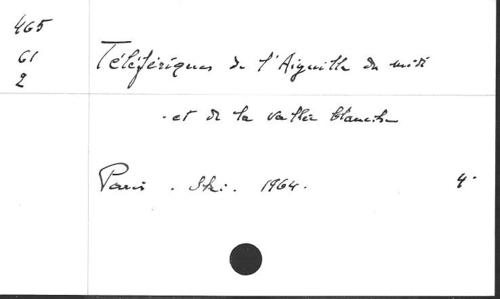 465
61
2
Téléfériques de l'Aiguille du midi
et de la vallée blanche
Paris. Ski. 1964. 4°